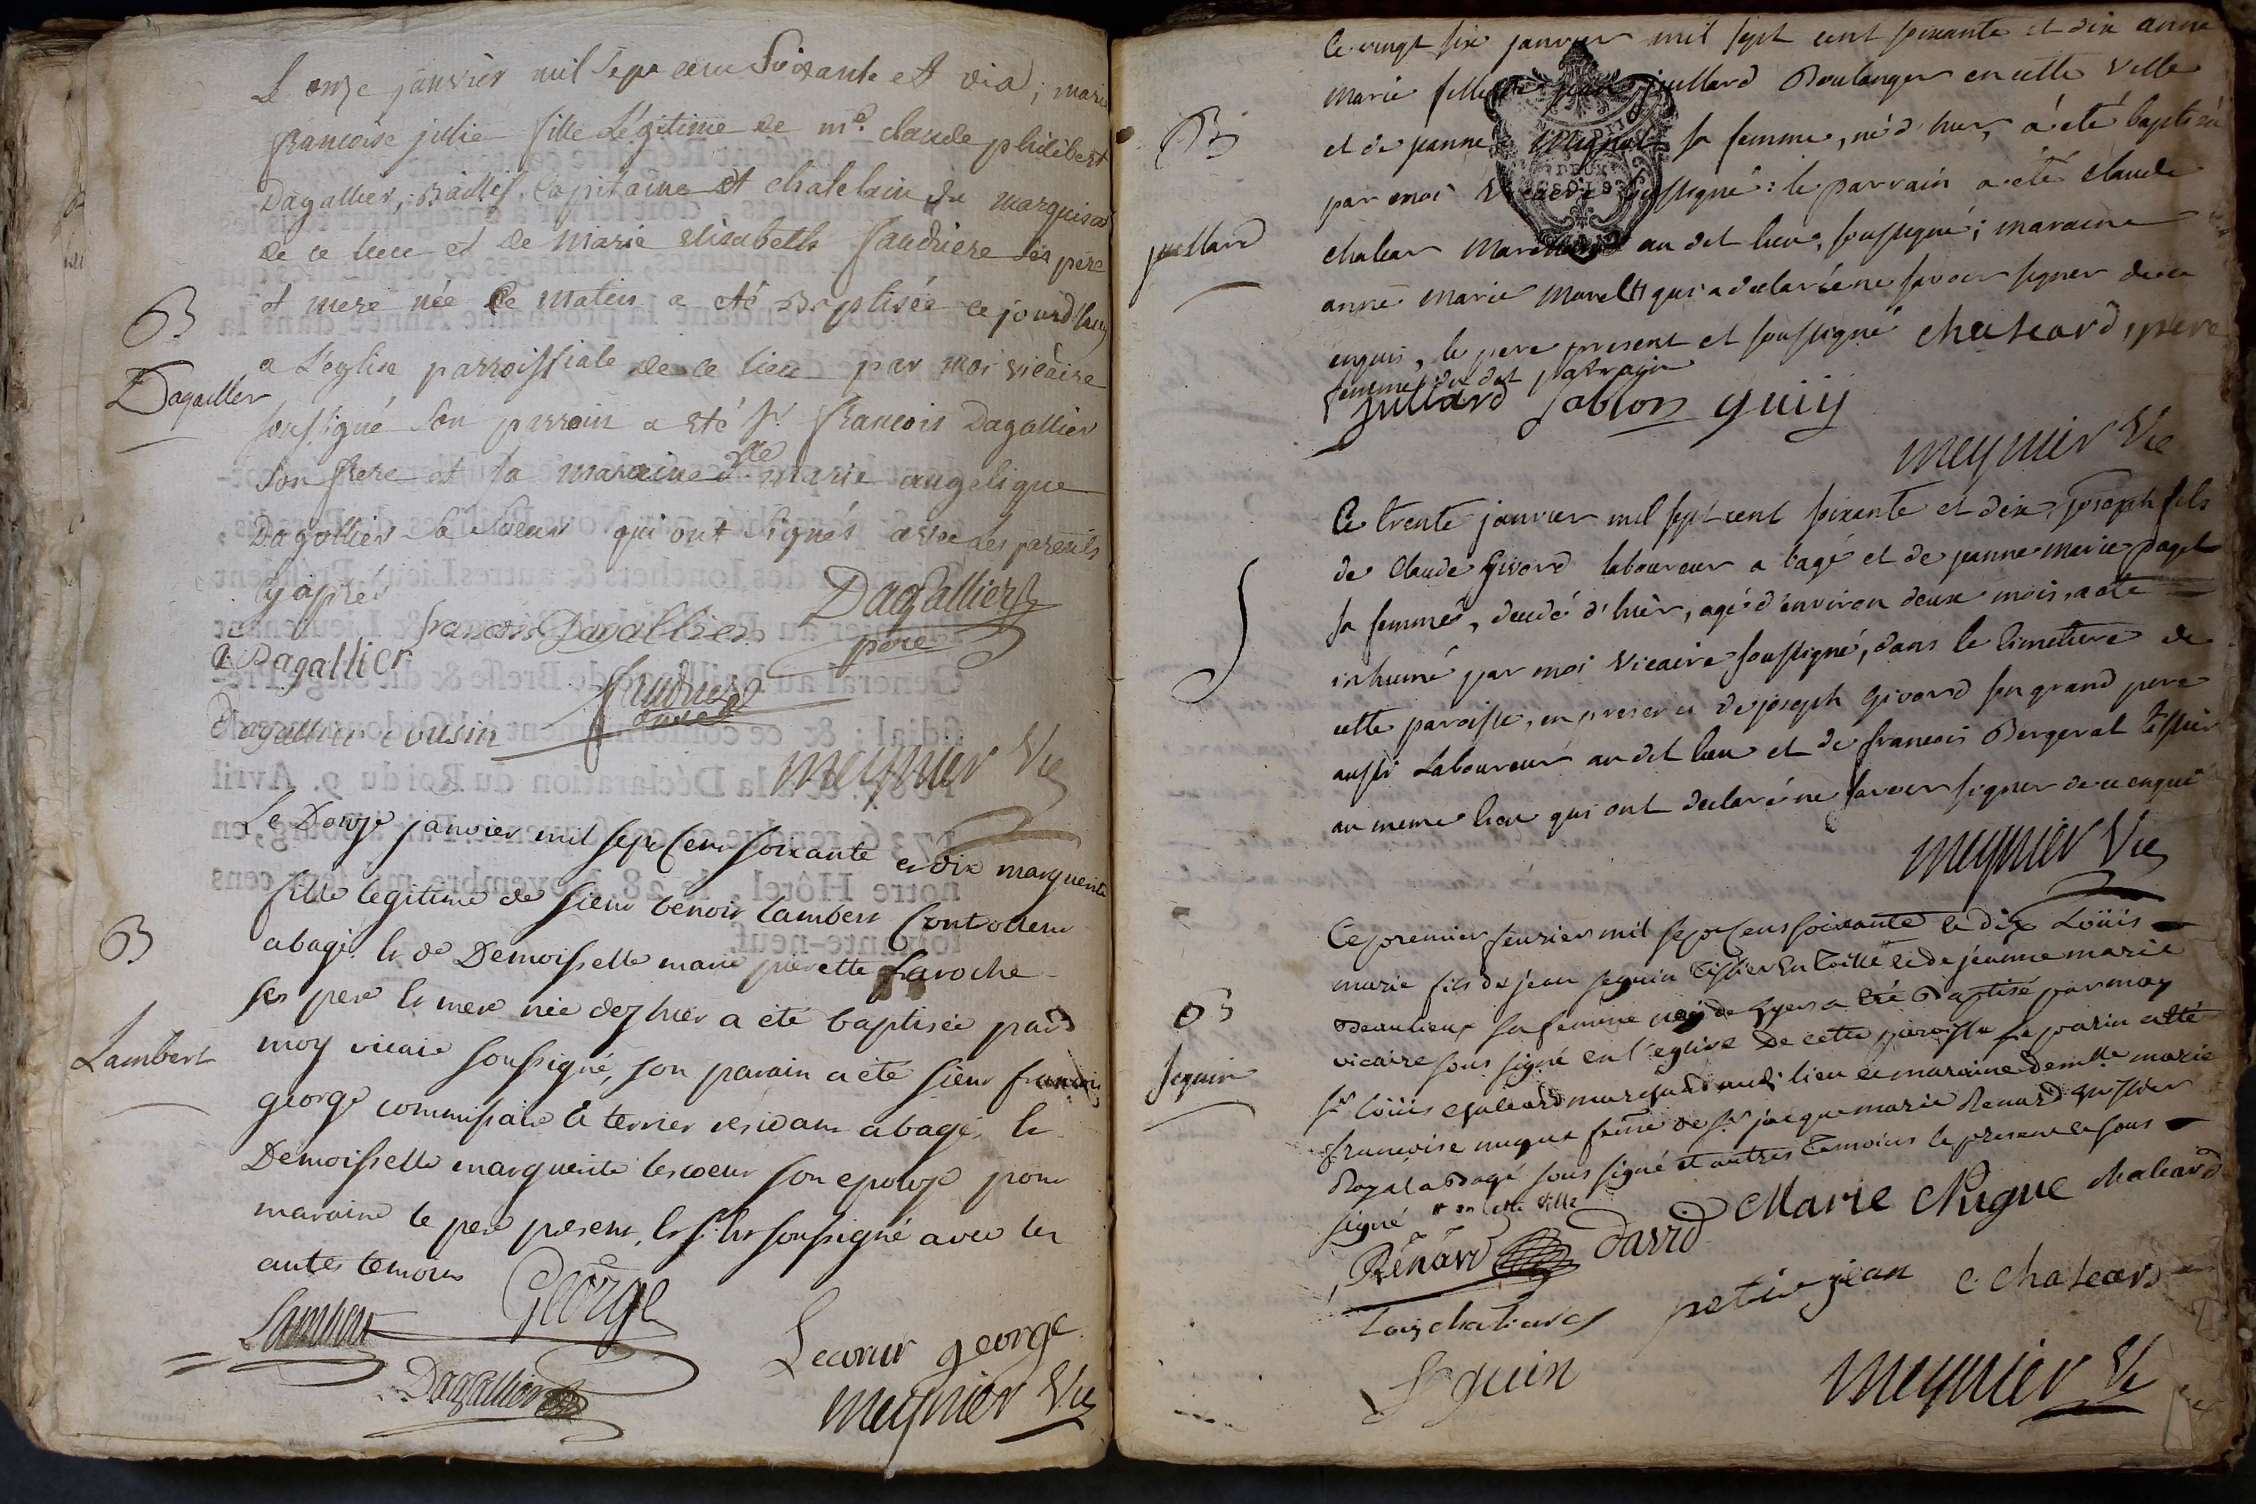 L onze janvier mil sept cens soixante et dix, marie
francoise julie fille Légitime de me. claude philibert
Dagallier, Baillif, Capitaine et chatelain du marquisat
de ce lieu et de marie elisabeth faudriere ses pere
et mere née Ce matin a eté Baptisée ce jourd'huy
a L'eglise parroissiale de ce lieu par moi vicaire
soussigné son parrain a eté Sr. francois Dagallier
son frere et sa maraine dlle marie angelique
Dagallier sa soeur qui ont signés avec les parents
y après
B
Dagallier
Dagallier
pere
francois Dagallier
a Dagallier
Dagallier cousin
meynier Vic
Le Douze janvier mil sept cens soixante et dix marguerite
fille legitime de sieur benoit lambert Controlleur
abagé et de Demoisselle marie pierette Laroche
ses pere et mere née dez hier a eté baptisée par
moy vicaire soussigné, son parain a eté sieur francois
george commissaire a terrier residant abagé, et
Demoisselle marguerite lescoeur son epouze pour
maraine le pere present, et soussigné avec les
autes temoins
B
Lambert
Lambert
George
Lecoeur george
Dagallier
meynier Vic
Ce vingt six janvier mil sept cent soixante et dix anne
marie fille de juillard Boulanger en cette Ville
et de janne sa femme, né d'hier, a été baptisée
par moi Vicaire soussigné : le parrain a eté Claude
chaleard marchand au dit lieu, soussigné; maraine
anne marie morel qui a declaré ne savoir signer de ce
enquis, le pere present et soussigné chaleard, pere
femme du dit parrain
juillard sablon guiy
meynier Vic
B
juillard
Ce trente janvier mil sept cent soixante et dix, joseph fils
de Claude Givord laboureur a bagé et de janne marie paget
sa femme, decedé d'hier, agé d'environ deux mois, a ete
inhumé par moi Vicaire soussigné, dans le Cimetiere de
cette paroisse, en presence de joseph Givord son grand pere
aussi Laboureur au dit lieu et de francois Bergerat tissier
au meme lieu qui ont declaré ne savoir signer de ce enquis
meynier Vic
S
Ce premier fevrier mil sept cens soixante et dix Loüis
marie fils de jean seguin Tissier En Toille et de jeanne marie
Beaulieux sa femme né de hyer a été Baptisé par moy
vicaire sous signé en l'eglise de cette paroisse le parin a été
sr Loüis chaleard marchand audi lieu et maraine demlle marie
francoise nugue feme de sr jacque marie Renard huissier
Royal a Bagé sous signé et autres Temoins le present et sous
signé # en cette Ville
B
Seguin
Rénard David Marie Nugue chaleard
Louis chaleard petit jean C chaleard
Seguin
meynier Vc